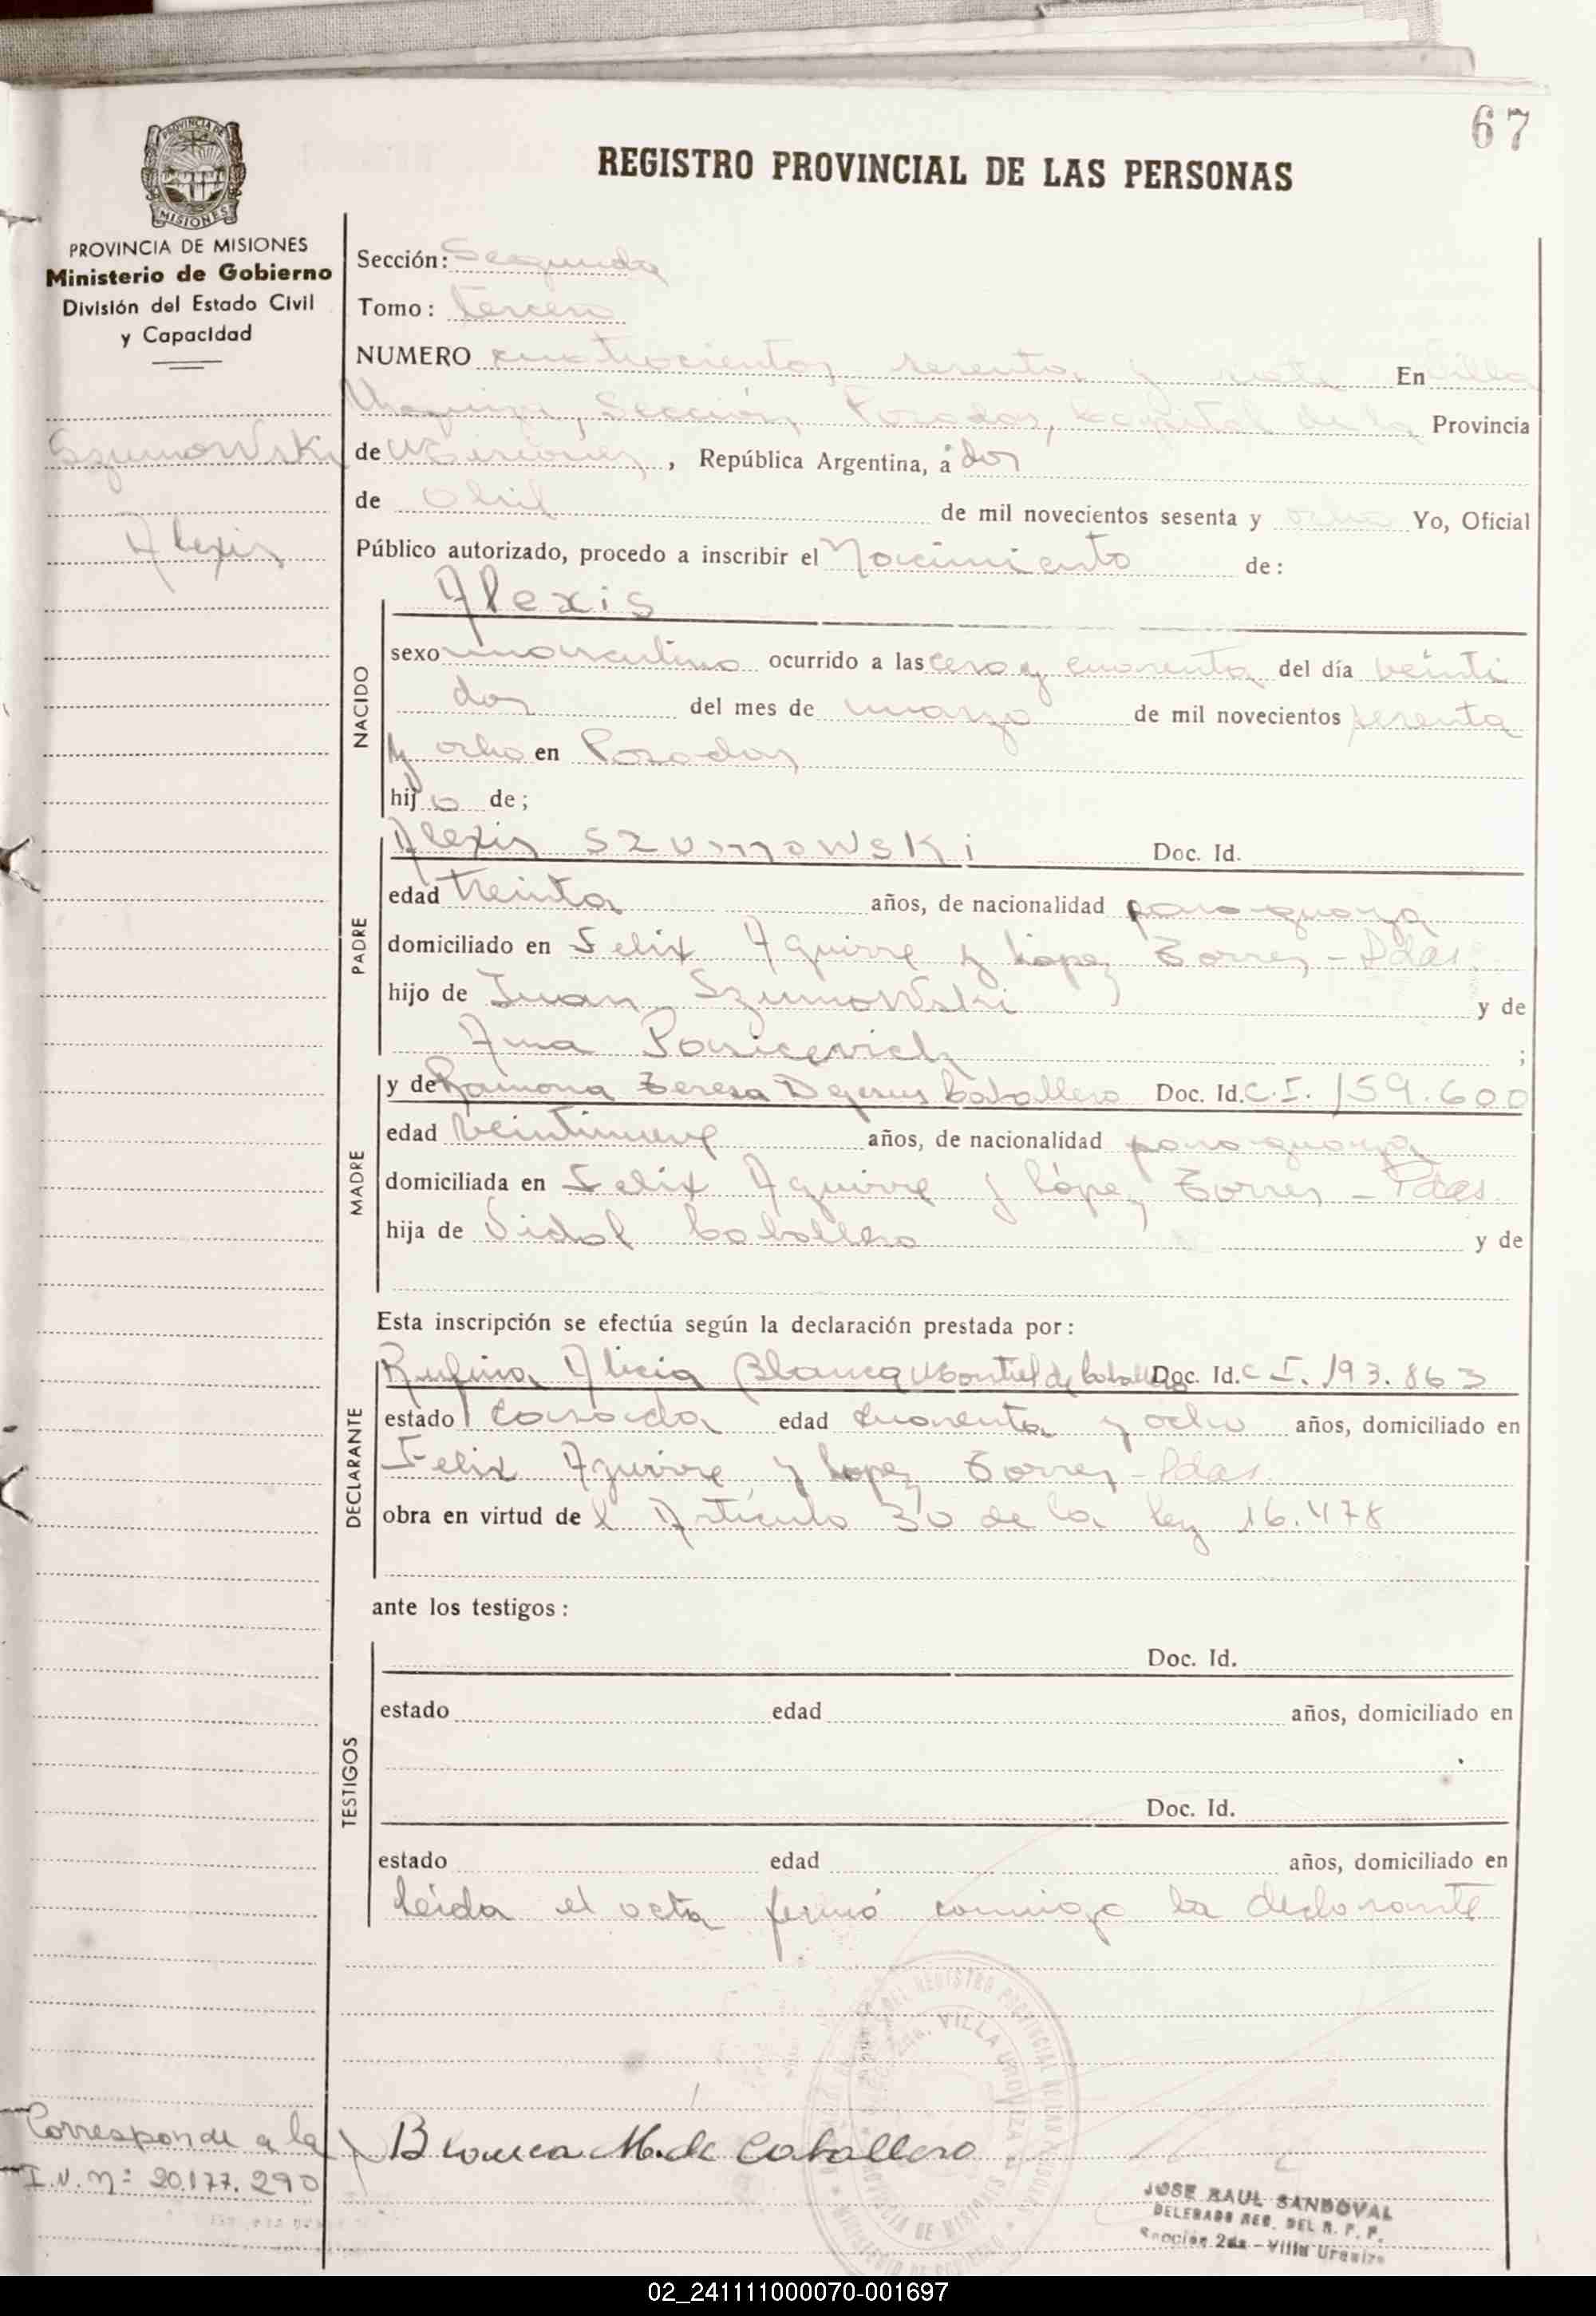 67
PROVINCIA DE
MISIONES
REGISTRO PROVINCIAL DE LAS PERSONAS
PROVINCIA DE MISIONES
Ministerio de Gobierno
División del Estado Civil
y Capacidad
Szumowski
Alexis
Sección: Segunda
Tomo: tercero
NUMERO cuatrocientos sesenta y siete En Villa
Urquiza, Sección Posadas, Capital de la Provincia
de Misiones, República Argentina, a dos
de abril de mil novecientos sesenta y ocho Yo, Oficial
Público autorizado, procedo a inscribir el Nacimiento de:
NACIDO
Alexis
sexo masculino ocurrido a las cero y cuarenta del día veinti
dos del mes de marzo de mil novecientos sesenta
y ocho en Posadas
hijo de;
PADRE
Alexis SZUMOWSKi Doc. Id.
edad treinta años, de nacionalidad paraguaya
domiciliado en Felix Aguirre y López Torres - Pdas.
hijo de Juan Szumowski y de
Ana ;
MADRE
y de Ramona Teresa Dejesus Caballero Doc. Id. C.I. 159.600
edad veintinueve años, de nacionalidad paraguaya
domiciliada en Felix Aguirre y López Torres - Pdas.
hija de Vidal Caballero y de
Esta inscripción se efectúa según la declaración prestada por:
DECLARANTE
Rufina Alicia Blanca Montiel de Caballero Doc. Id. C.I. 193.863
estado casada edad cuarenta y ocho años, domiciliado en
Felix Aguirre y Lopez Torres - Pdas.
obra en virtud de l Artículo 30 de la ley 16.478
ante los testigos:
TESTIGOS
Doc. Id.
estado edad años, domiciliado en
Doc. Id.
estado edad años, domiciliado en
leída el acta firmó conmigo la declarante
Corresponde a la
I.N. Nº: 20.177.290
Blanca M. de Caballero
JOSE RAUL SANDOVAL
DELEGADO REG. DEL R. P. P.
Sección 2da - Villa Urquiza
02_241111000070-001697